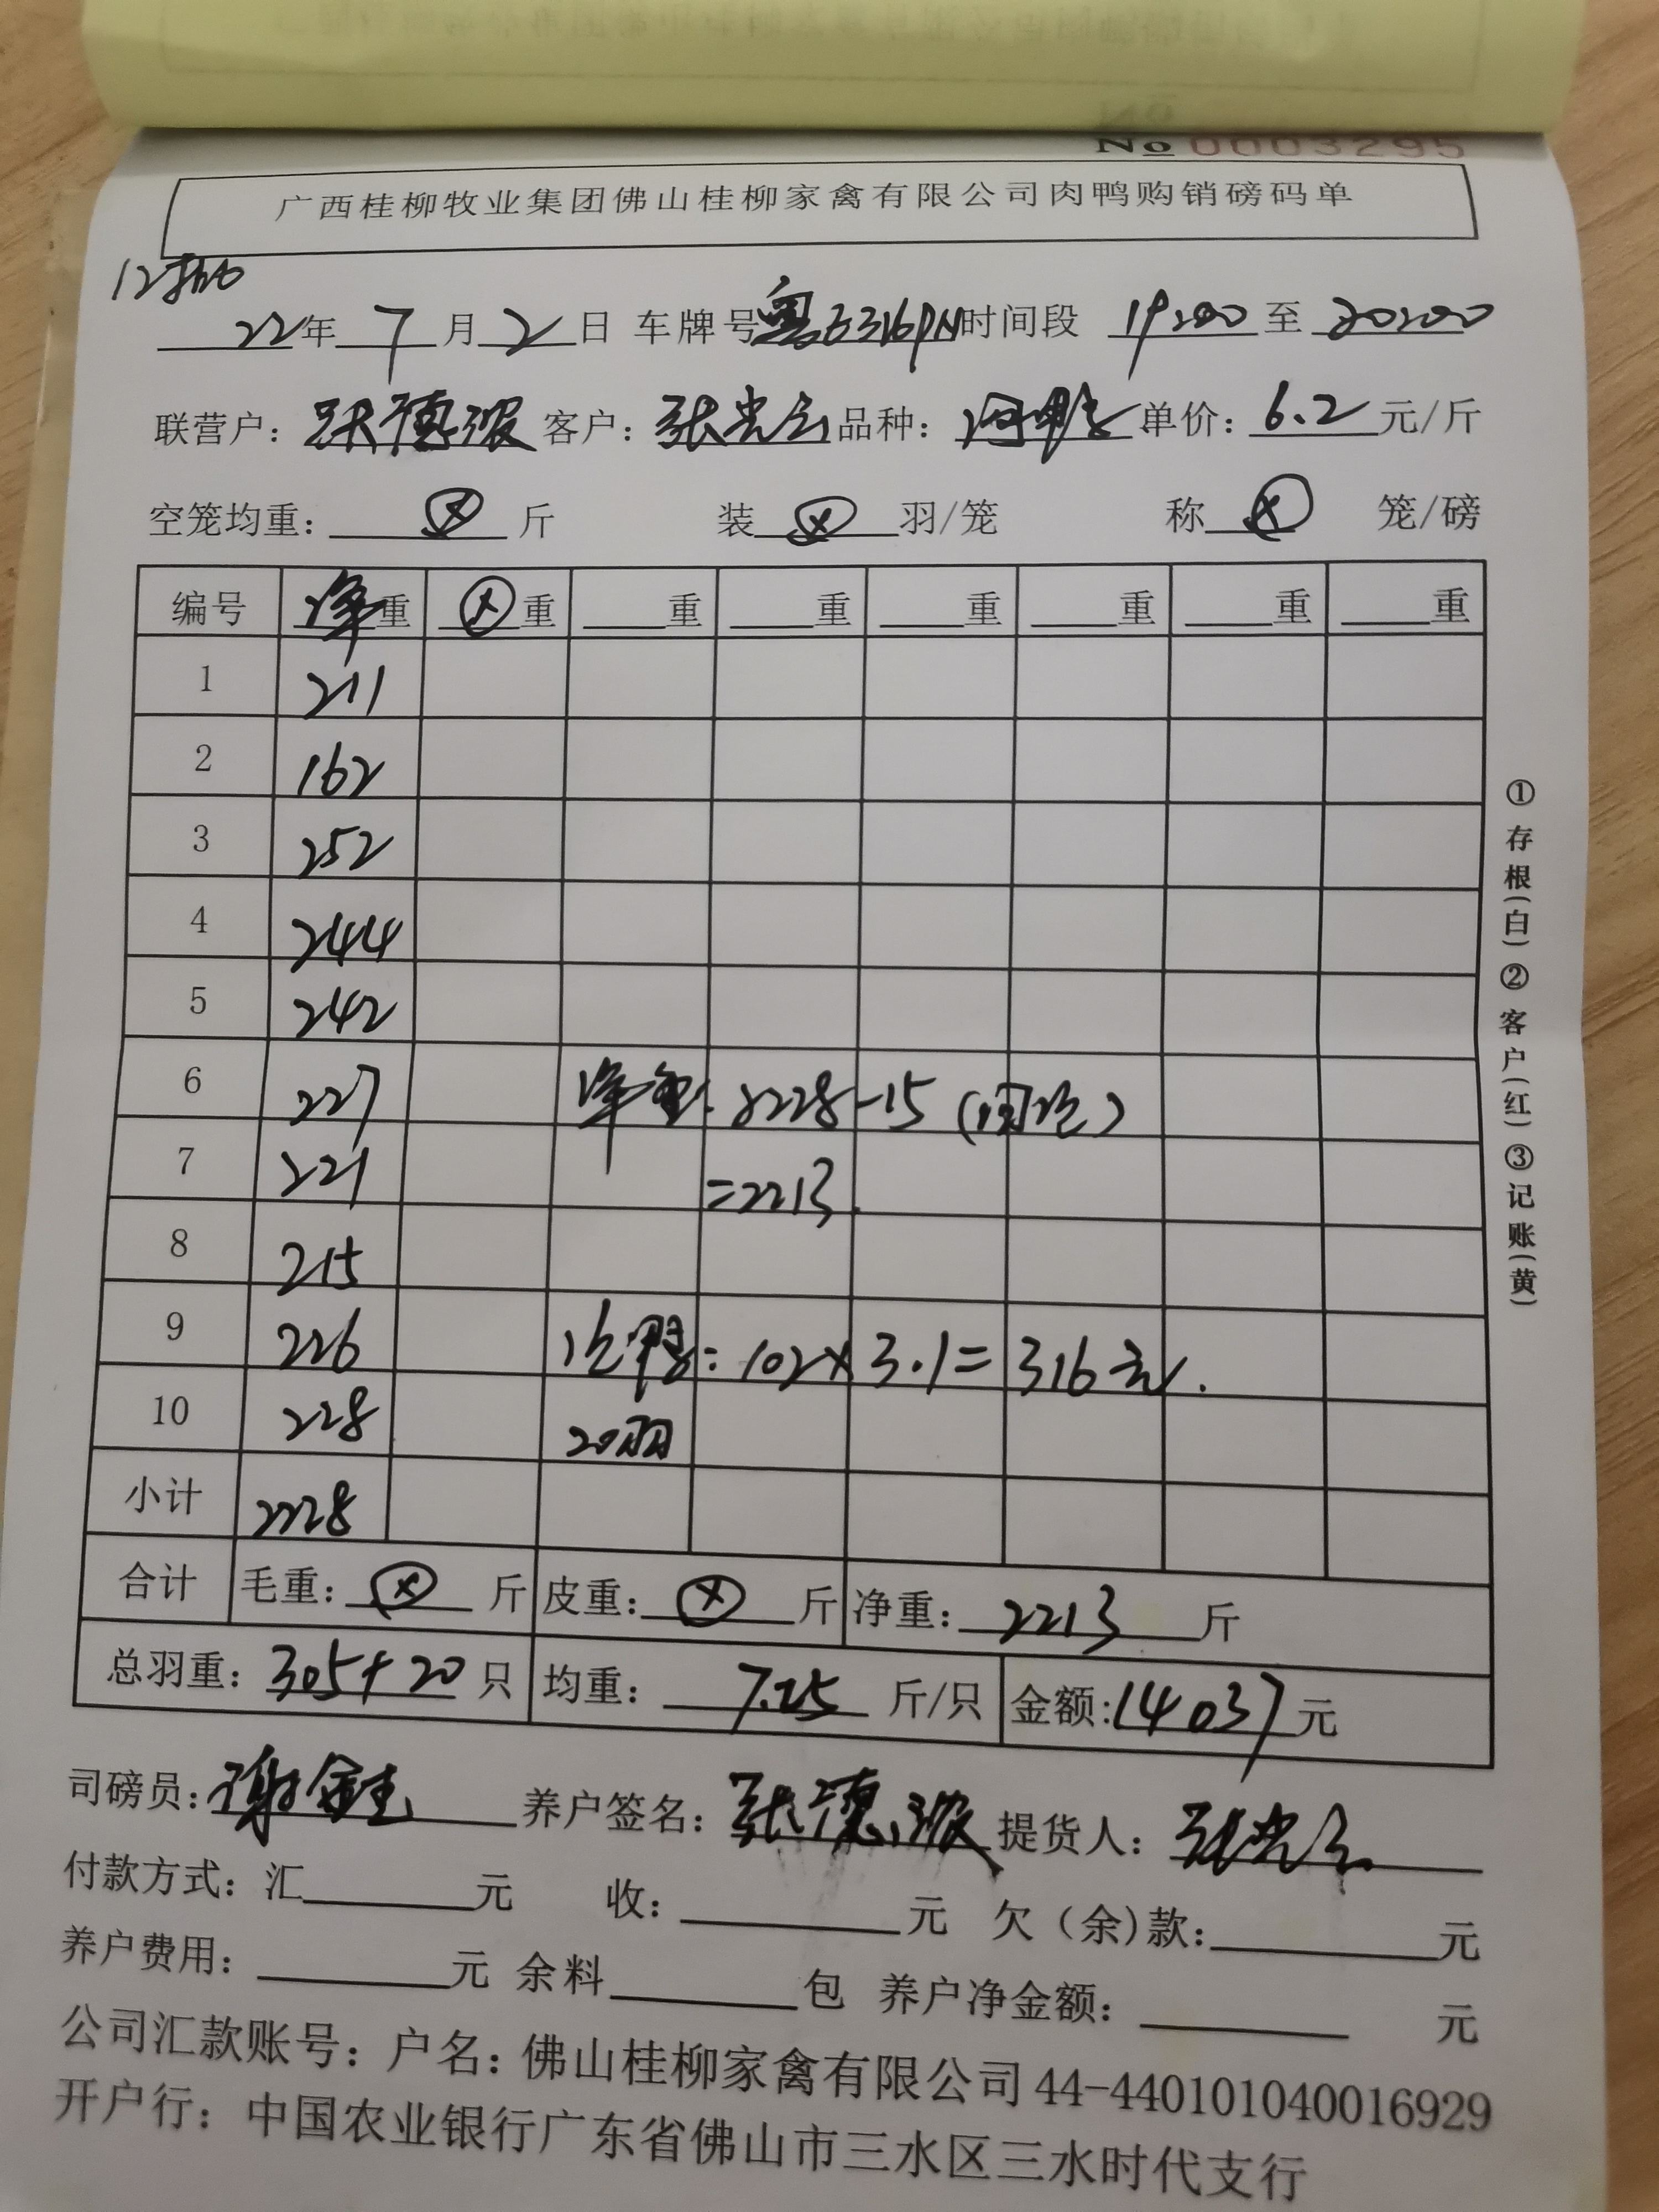 No 0003295
广西桂柳牧业集团佛山桂柳家禽有限公司肉鸭购销磅码单
22年7月2日 车牌号 粤E316PN 时间段 19:00 至 20:00
联营户: 张德波 客户: 张光云 品种: 单价: 6.2 元/斤
空笼均重: ⊗ 斤 装 ⊗ 羽/笼 称 ⊗ 笼/磅
编号 净重 ⊗重 重 重 重 重 重 重
1 211
2 162
3 252
4 244
5 242
6 227 净重: 2228-15 (
7 221 =2213.
8 215
9 226 鸭: 102×3.1=316元.
10 228 20羽
小计 2228
合计 毛重: ⊗ 斤 皮重: ⊗ 斤 净重: 2213 斤
总羽重: 305+20 只 均重: 7.25 斤/只 金额: 14037 元
司磅员: 谢 养户签名: 张德波 提货人: 张光云
付款方式: 汇 元 收: 元 欠(余)款: 元
养户费用: 元 余料 包 养户净金额: 元
公司汇款账号: 户名: 佛山桂柳家禽有限公司 44-440101040016929
开户行: 中国农业银行广东省佛山市三水区三水时代支行
①存根(白)②客户(红)③记账(黄)